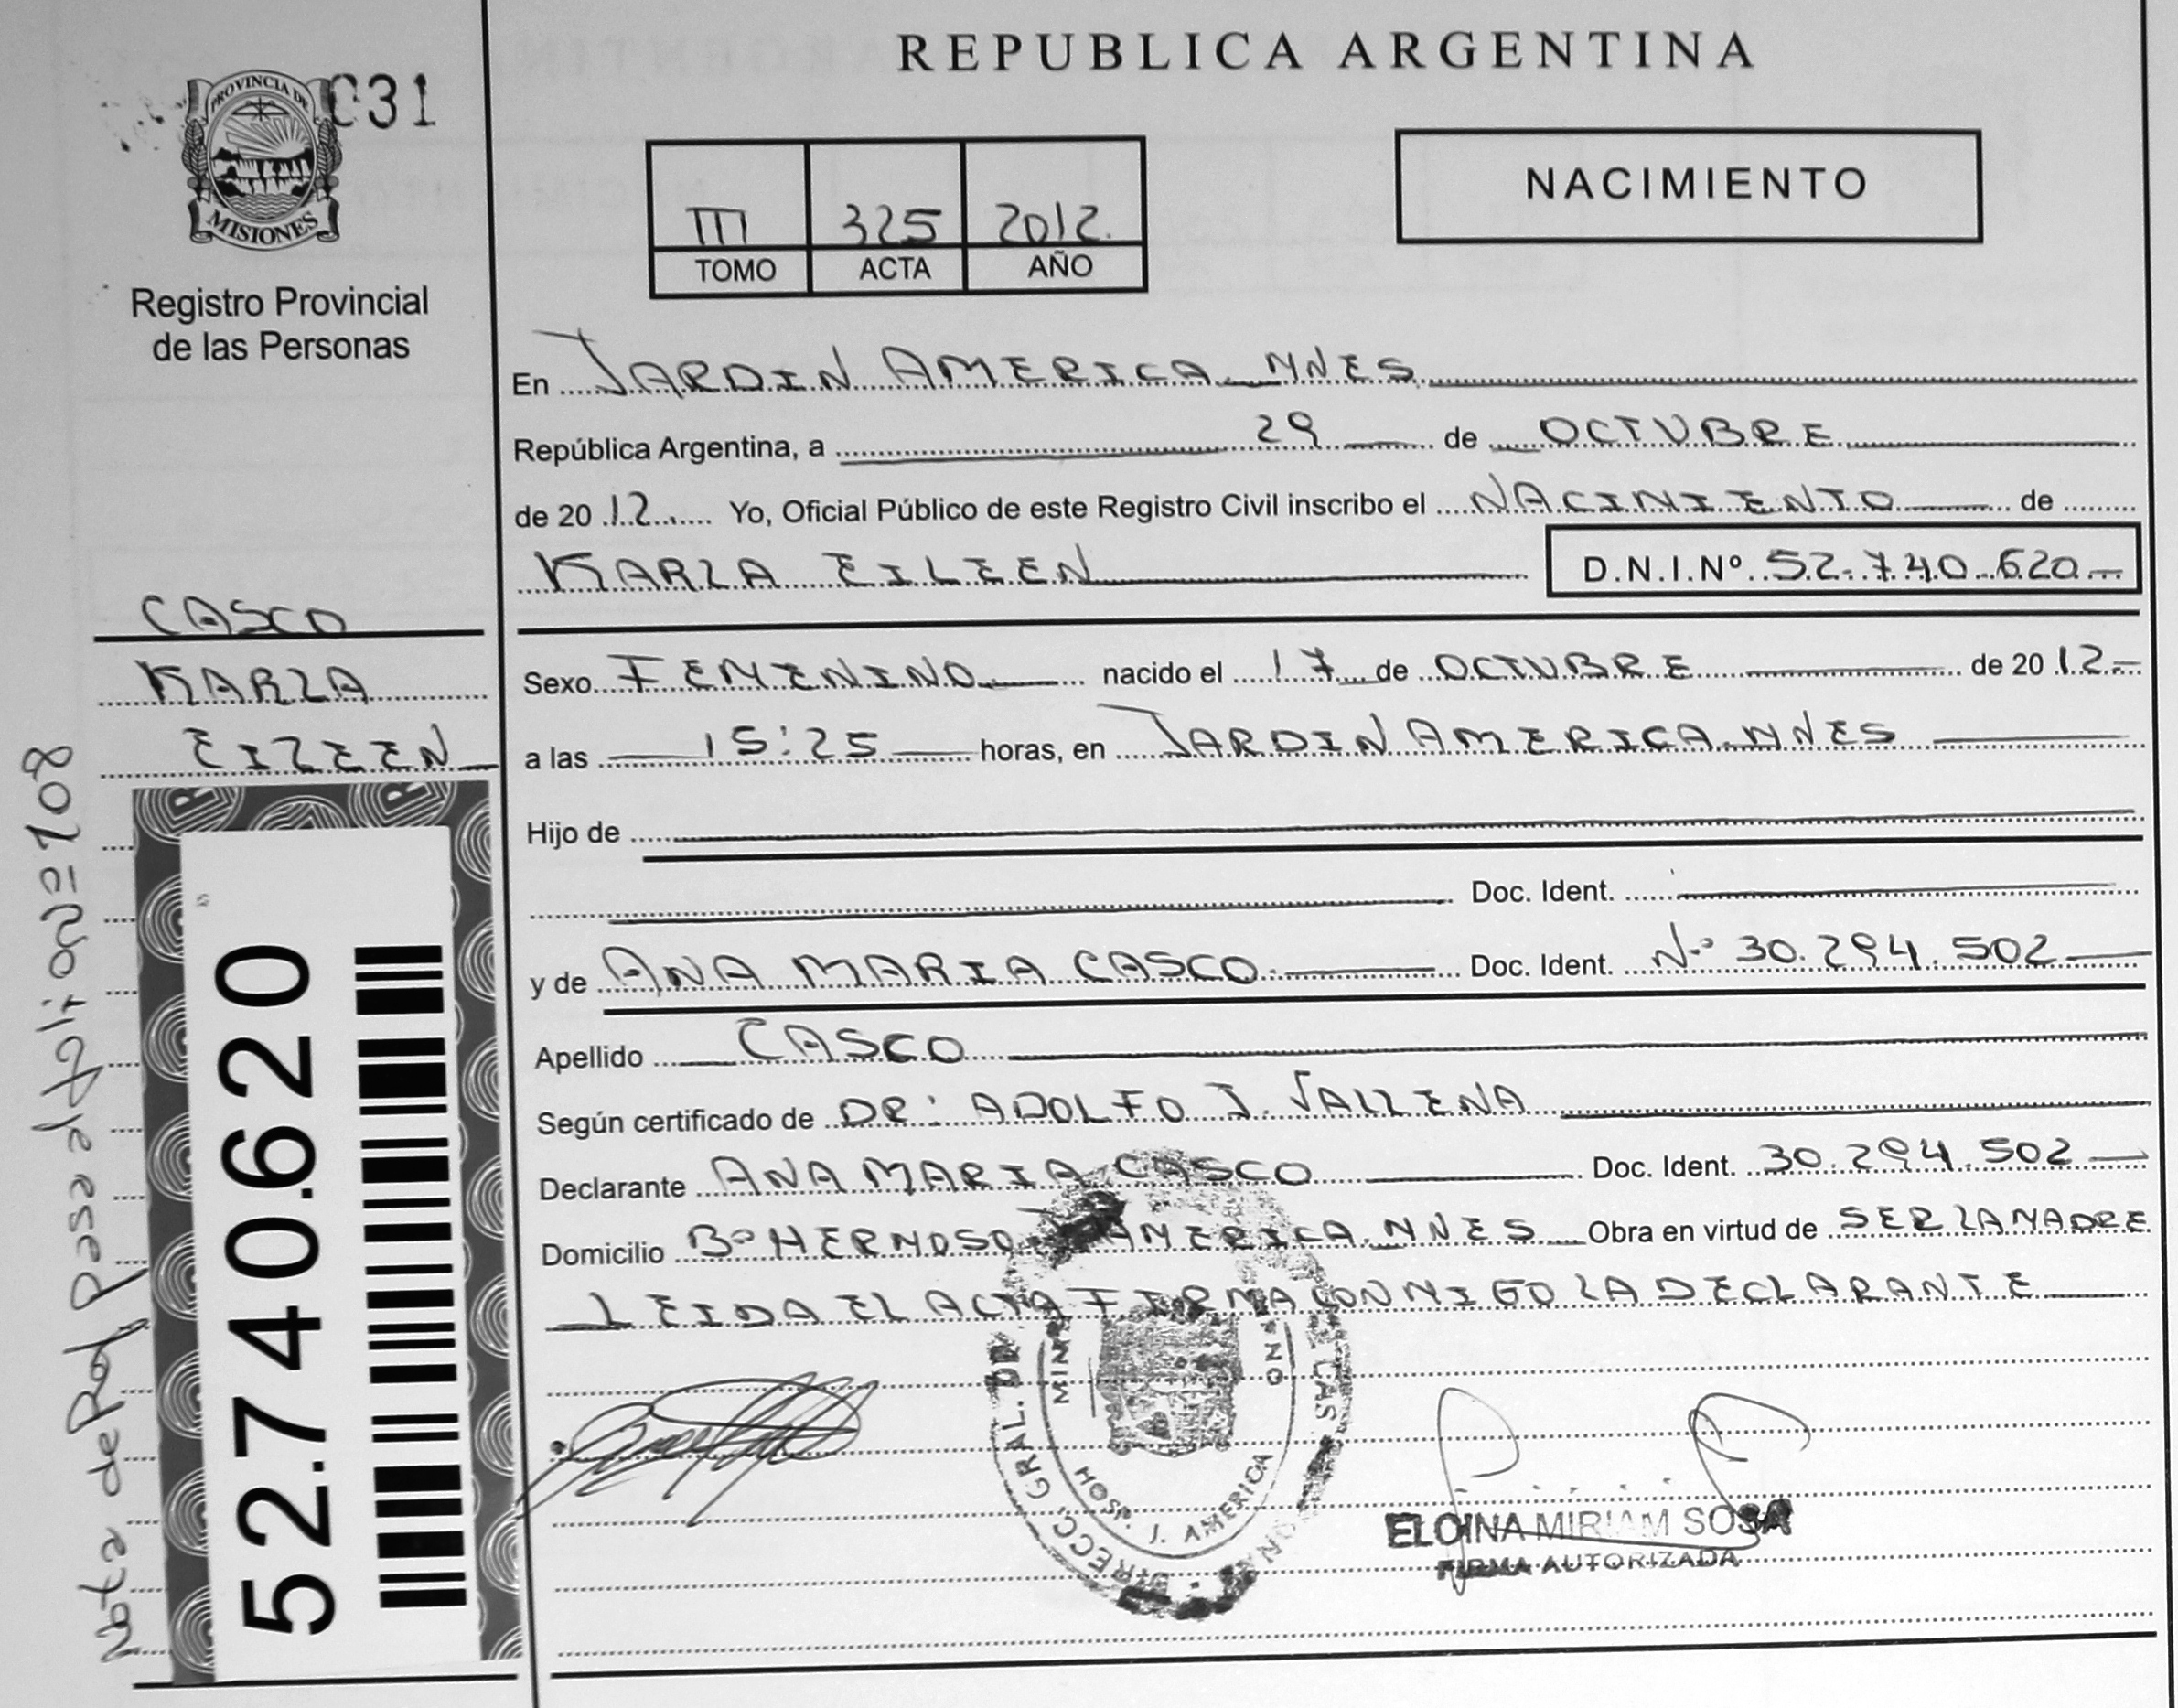 REPUBLICA ARGENTINA
PROVINCIA DE
MISIONES
031
Registro Provincial
de las Personas
III 325 2012.
TOMO ACTA AÑO
NACIMIENTO
En JARDIN AMERICA MNES
República Argentina, a 29 de OCTUBRE
de 2012 Yo, Oficial Público de este Registro Civil inscribo el NACIMIENTO de
KARLA EILEEN D.N.I.Nº 52.740.620
CASCO
KARLA
EILEEN
Sexo FEMENINO nacido el 17 de OCTUBRE de 2012
a las 15:25 horas, en JARDIN AMERICA MNES
Hijo de
Doc. Ident.
y de ANA MARIA CASCO Doc. Ident. Nº 30.294.502
Apellido CASCO
Según certificado de DR: ADOLFO J. VALLENA
Declarante ANA MARIA CASCO Doc. Ident. 30.294.502
Domicilio Bº HERMOSO J. AMERICA MNES Obra en virtud de SER LA MADRE
LEIDA EL ACTA FIRMA CONMIGO LA DECLARANTE
HOSP. J. AMERICA
ELOINA MIRIAM SOSA
FIRMA AUTORIZADA
52.740.620
Nota de Ref. Pasa al folio Nº 108